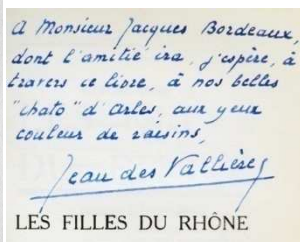 A Monsieur Jacques Bordeaux,
dont l'amitié ira, j'espère, à
travers ce livre, à nos belles
"chato" d'Arles, aux yeux
couleur de raisins,
Jean des Vallières
LES FILLES DU RHÔNE